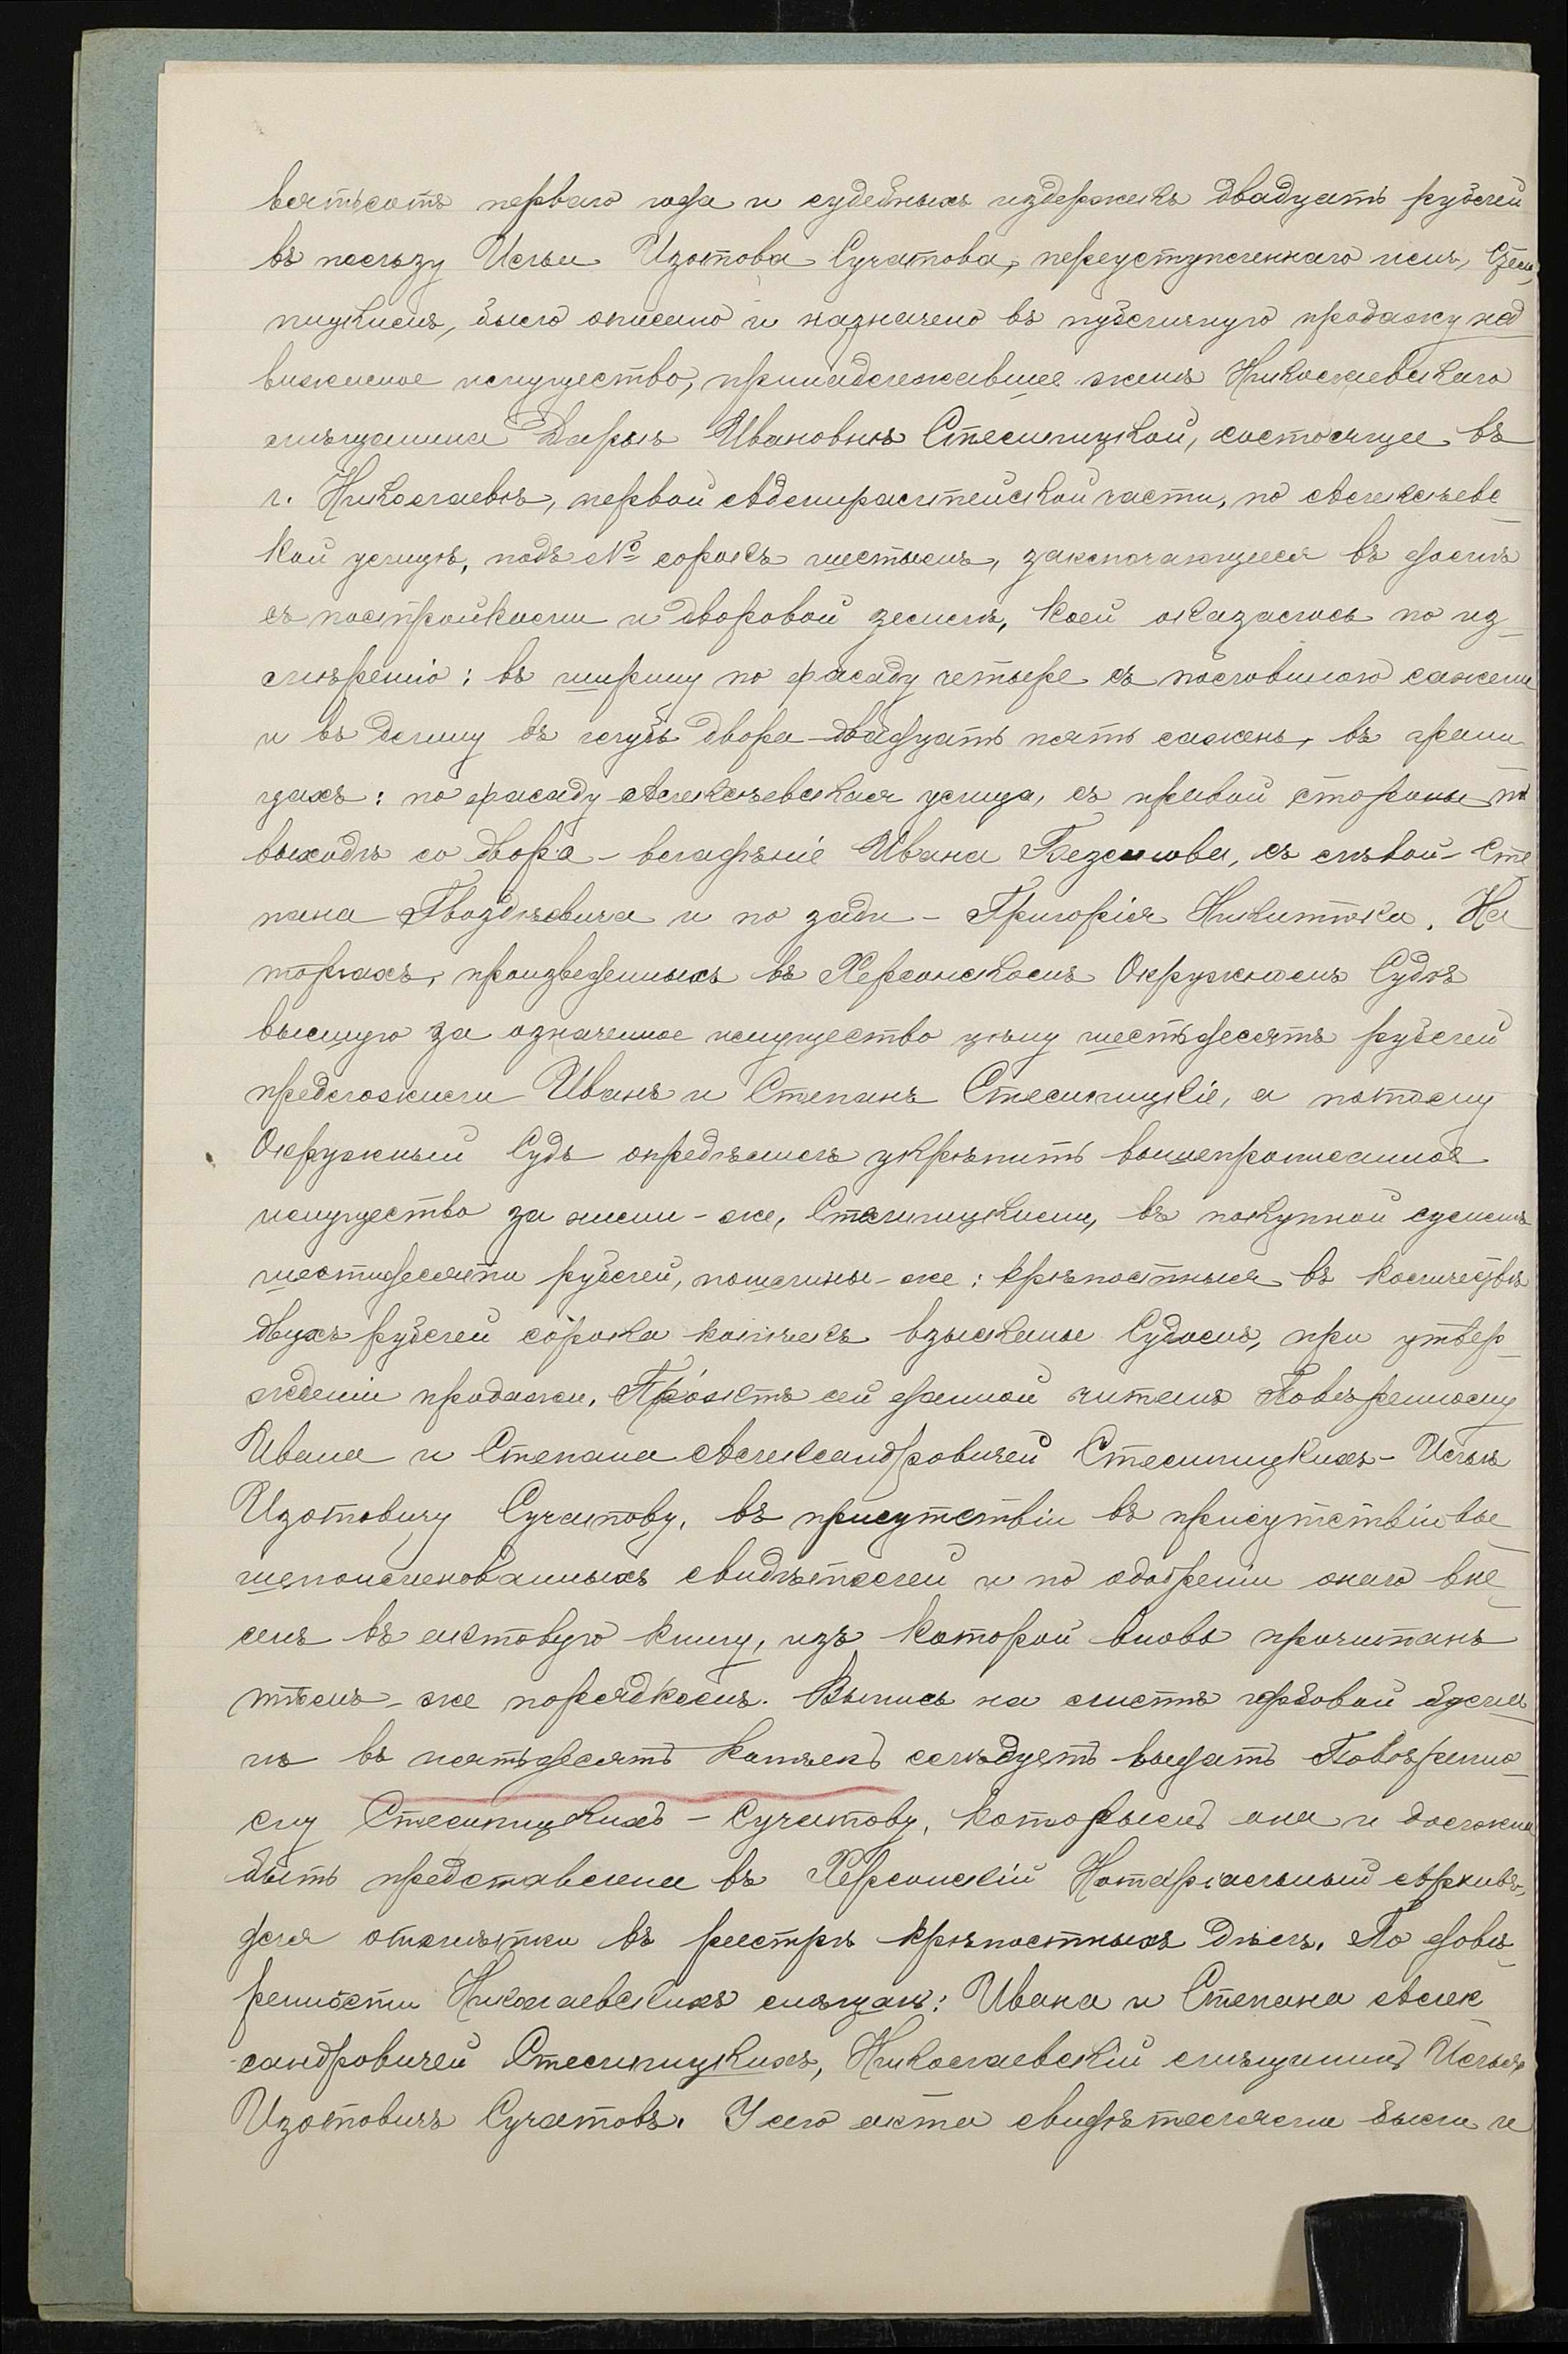 вятьсотъ перваго года и судебныхъ издержекъ двадцать рублей
въ пользу Ильи Изотова Сучатова, переуступленнаго имъ, Стем-
пицкимъ, было описано и назначено въ публичную продажу нед
вижимое имущество, принадлежавшее женѣ Николаевскаго
мѣщанина Дарьѣ Ивановнѣ Стемпицкой, состоящее въ
г. Николаевѣ, первой Адмиралтейской части, по Алексѣевс-
кой улицѣ, подъ № сорокъ шестымъ, заключающееся въ домѣ
съ постройками и дворовой землѣ, коей оказалось по из-
мѣренію: въ ширину по фасаду четыре съ половиною сажени
и въ длину въ глубь двора двадцать пять сажень, въ грани
цахъ: по фасаду Алексѣевская улица, съ правой стороны по
выходѣ со двора - владѣніе Ивана, съ лѣвой - Сте
пана Гвоздѣвича и по зади - Григорія Никитюка. На
торгахъ, произведенныхъ въ Херсонскомъ Окружномъ Судѣ
высшую за означенное имущество цѣну шестьдесятъ рублей
предложили Иванъ и Степанъ Стемпицкіе, а потому
Окружный Судъ опредѣлилъ укрѣпить вышепрописанное
имущество за ними-же, Стемпицкими, въ покупной суммѣ
шестидесяти рублей, пошлины-же: крѣпостныя въ количествѣ
двухъ рублей сорока копѣекъ взысканы Судомъ, при утвер-
жденіи продажи. Проэктъ сей данной читанъ Повѣренному
Ивана и Степана Александровичей Стемпицкихъ - Ильѣ
Изотовичу Сучатову, въ присутствіи въ присутствіи вы
шепоименованныхъ свидѣтелей и по одобреніи онаго вне-
сенъ въ актовую книгу, изъ которой вновь прочитанъ
тѣмъ-же порядкомъ. Выпись на листѣ гербовой бума-
гѣ въ пятьдесятъ копѣекъ слѣдуетъ выдать Повѣренно-
му Стемпицкихъ - Сучатову, которымъ она и должна
быть представлена въ Херсонскій Нотаріальный Архивъ,
для отмѣтки въ реестрѣ крѣпостныхъ дѣлъ. По довѣ-
ренности Николаевскихъ мѣщанъ: Ивана и Степана Алек
сандровичей Стемпицкихъ, Николаевскій мѣщанинъ Илья
Изотовичъ Сучатовъ. У сего акта свидѣтелями были и